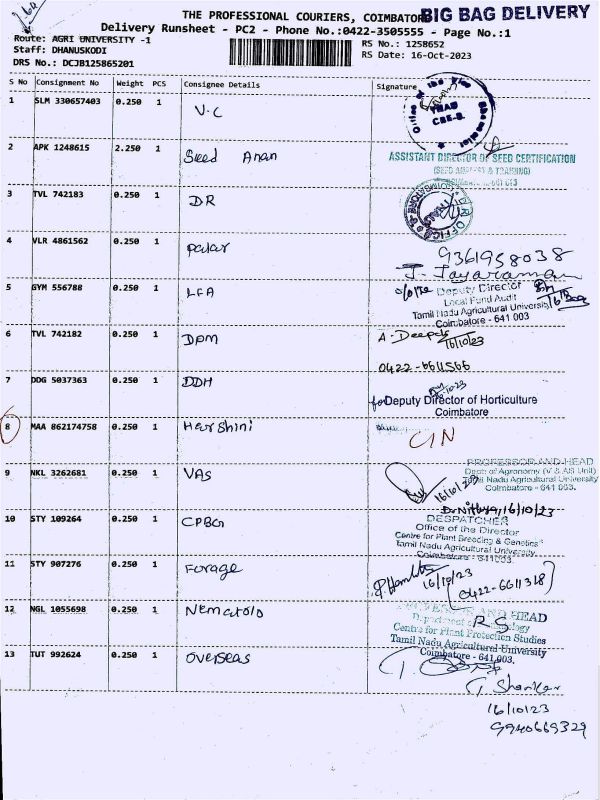 THE PROFESSIONAL COURIERS, COIMBATORE
BIG BAG DELIVERY
Delivery Runsheet - PC2 - Phone No.:0422-3505555 - Page No.:1
Route: AGRI UNIVERSITY -1
RS No.: 1258652
Staff: DHANUSKODI
RS Date: 16-Oct-2023
DRS No.: DCJB125865201
S No Consignment No Weight PCS Consignee Details Signature
1 SLM 330657403 0.250 1 V.C
Office of the Vice Chancellor
TNAU
CBE-3.
2 APK 1248615 2.250 1 Seed Anan
ASSISTANT DIRECTOR OF SEED CERTIFICATION
3 TVL 742183 0.250 1 DR
4 VLR 4861562 0.250 1 palar
9361958038
J. Jayaraman
5 GYM 556788 0.250 1 LFA
o/o the Deputy Director
Local Fund Audit
Tamil Nadu Agricultural University
Coimbatore - 641 003
6 TVL 742182 0.250 1 DPM
A. Deepa
16/10/23
0422-6611566
7 DDG 5037363 0.250 1 DDH
for Deputy Director of Horticulture
Coimbatore
8 MAA 862174758 0.250 1 Harshini
CIN
9 NKL 3262681 0.250 1 VAS
PROFESSOR AND HEAD
Dept: of Agronomy (V & AS Unit)
Tamil Nadu Agricultural University
Coimbatore - 641 003.
16/10/23
10 STY 109264 0.250 1 CPBG
D. Nithya, 16/10/23
DESPATCHER
Office of the Director
Centre for Plant Breeding & Genetics
Tamil Nadu Agricultural University
Coimbatore - 641003.
11 STY 907276 0.250 1 Forage
16/10/23
(0422-6611318)
12 NGL 1055698 0.250 1 Nematolo
PROFESSOR AND HEAD
Centre for Plant Protection Studies
Tamil Nadu Agricultural University
Coimbatore - 641 003.
13 TUT 992624 0.250 1 overseas
T. Shankar
16/10/23
9940669329